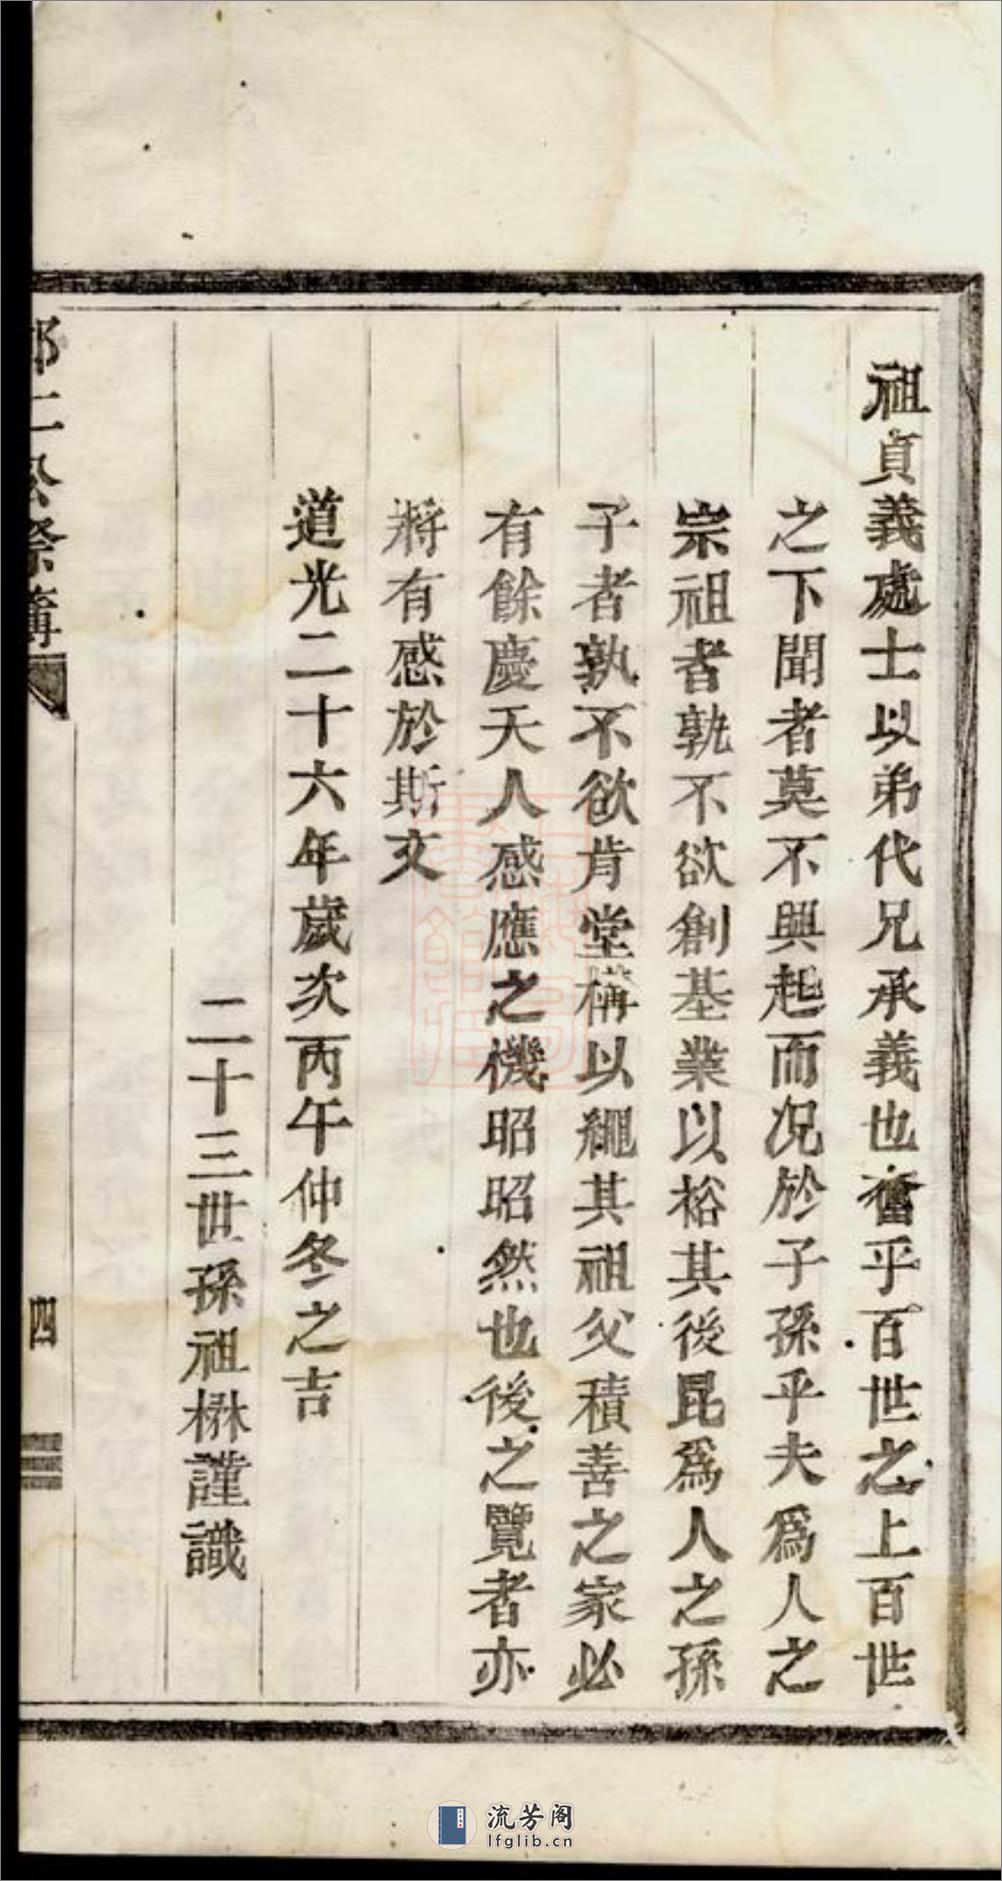 祖貞義處士以弟代兄承義也奮乎百世之上百世
之下聞者莫不興起而况於子孫乎夫爲人之
宗祖者孰不欲創基業以裕其後昆爲人之孫
子者孰不欲肯堂構以繩其祖父積善之家必
有餘慶天人感應之機昭昭然也後之覽者亦
將有感於斯文
道光二十六年歲次丙午仲冬之吉
二十三世孫祖楙謹識
仁公祭簿
四
流芳阁
lfglib.cn